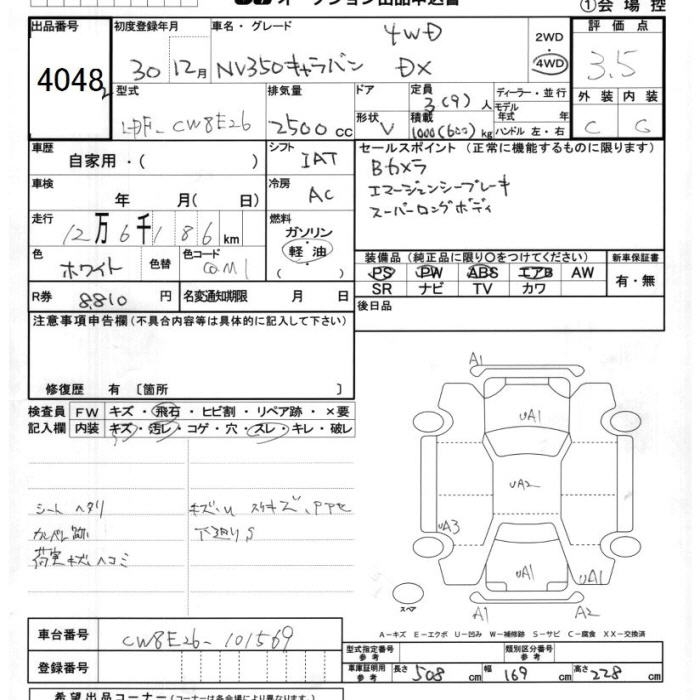 オークション出品申込書
①会場控
出品番号 初度登録年月 車名・グレード 評価点
4048 2
30 12月 NV350キャラバン 4WD DX
2WD
4WD
3.5
型式 排気量 ドア 定員 ディーラー・並行
3(9)人 モデル年式 年
外装 内装
LDF-CW8E26 2500cc
形状 V 積載 1000(600)kg ハンドル 左・右
C C
車歴 自家用・( ) シフト IAT セールスポイント (正常に機能するものに限ります)
Bカメラ
エマージェンシーブレーキ
スーパーロングボディ
車検 年 月(日) 冷房 AC
走行 12万6千186km 燃料 ガソリン・軽油 ( )
色 ホワイト 色替 色コード QM1
装備品 (純正品に限り○をつけてください) 新車保証書
PS PW ABS エアB AW
SR ナビ TV カワ
有・無
R券 8810円 名変通知期限 月 日
後日品
注意事項申告欄(不具合内容等は具体的に記入して下さい)
修復歴 有 〔箇所 〕
検査員記入欄
FW キズ・飛石・ヒビ割・リペア跡・×要
内装 キズ・汚レ・コゲ・穴・スレ・キレ・破レ
シートヘタリ
荷室キズ、ヘコミ
下廻りS
A1
UA1
UA2
UA3
UA1
UA1
A1 A2
スペア
A-キズ E-エクボ U-凹み W-補修跡 S-サビ C-腐食 XX-交換済
車台番号 CW8E26-101569
登録番号
型式指定番号参考 類別区分番号参考
車庫証明用参考 長さ 508cm 幅 169cm 高さ 228cm
希望出品コーナー(コーナーは各会場により異なります)